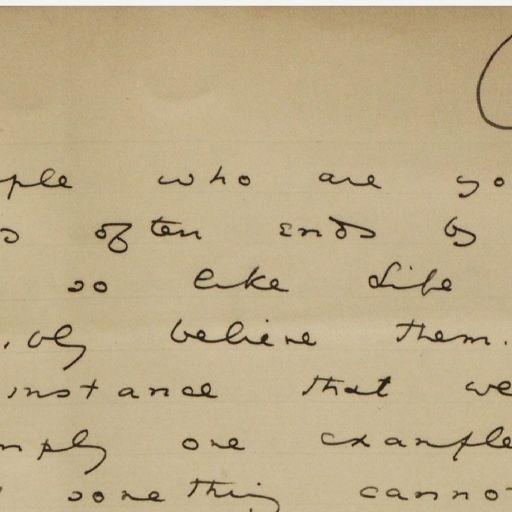 ple who are yo
often ends by
so like life
bly believe them.
instance that we
mply one example
something canno